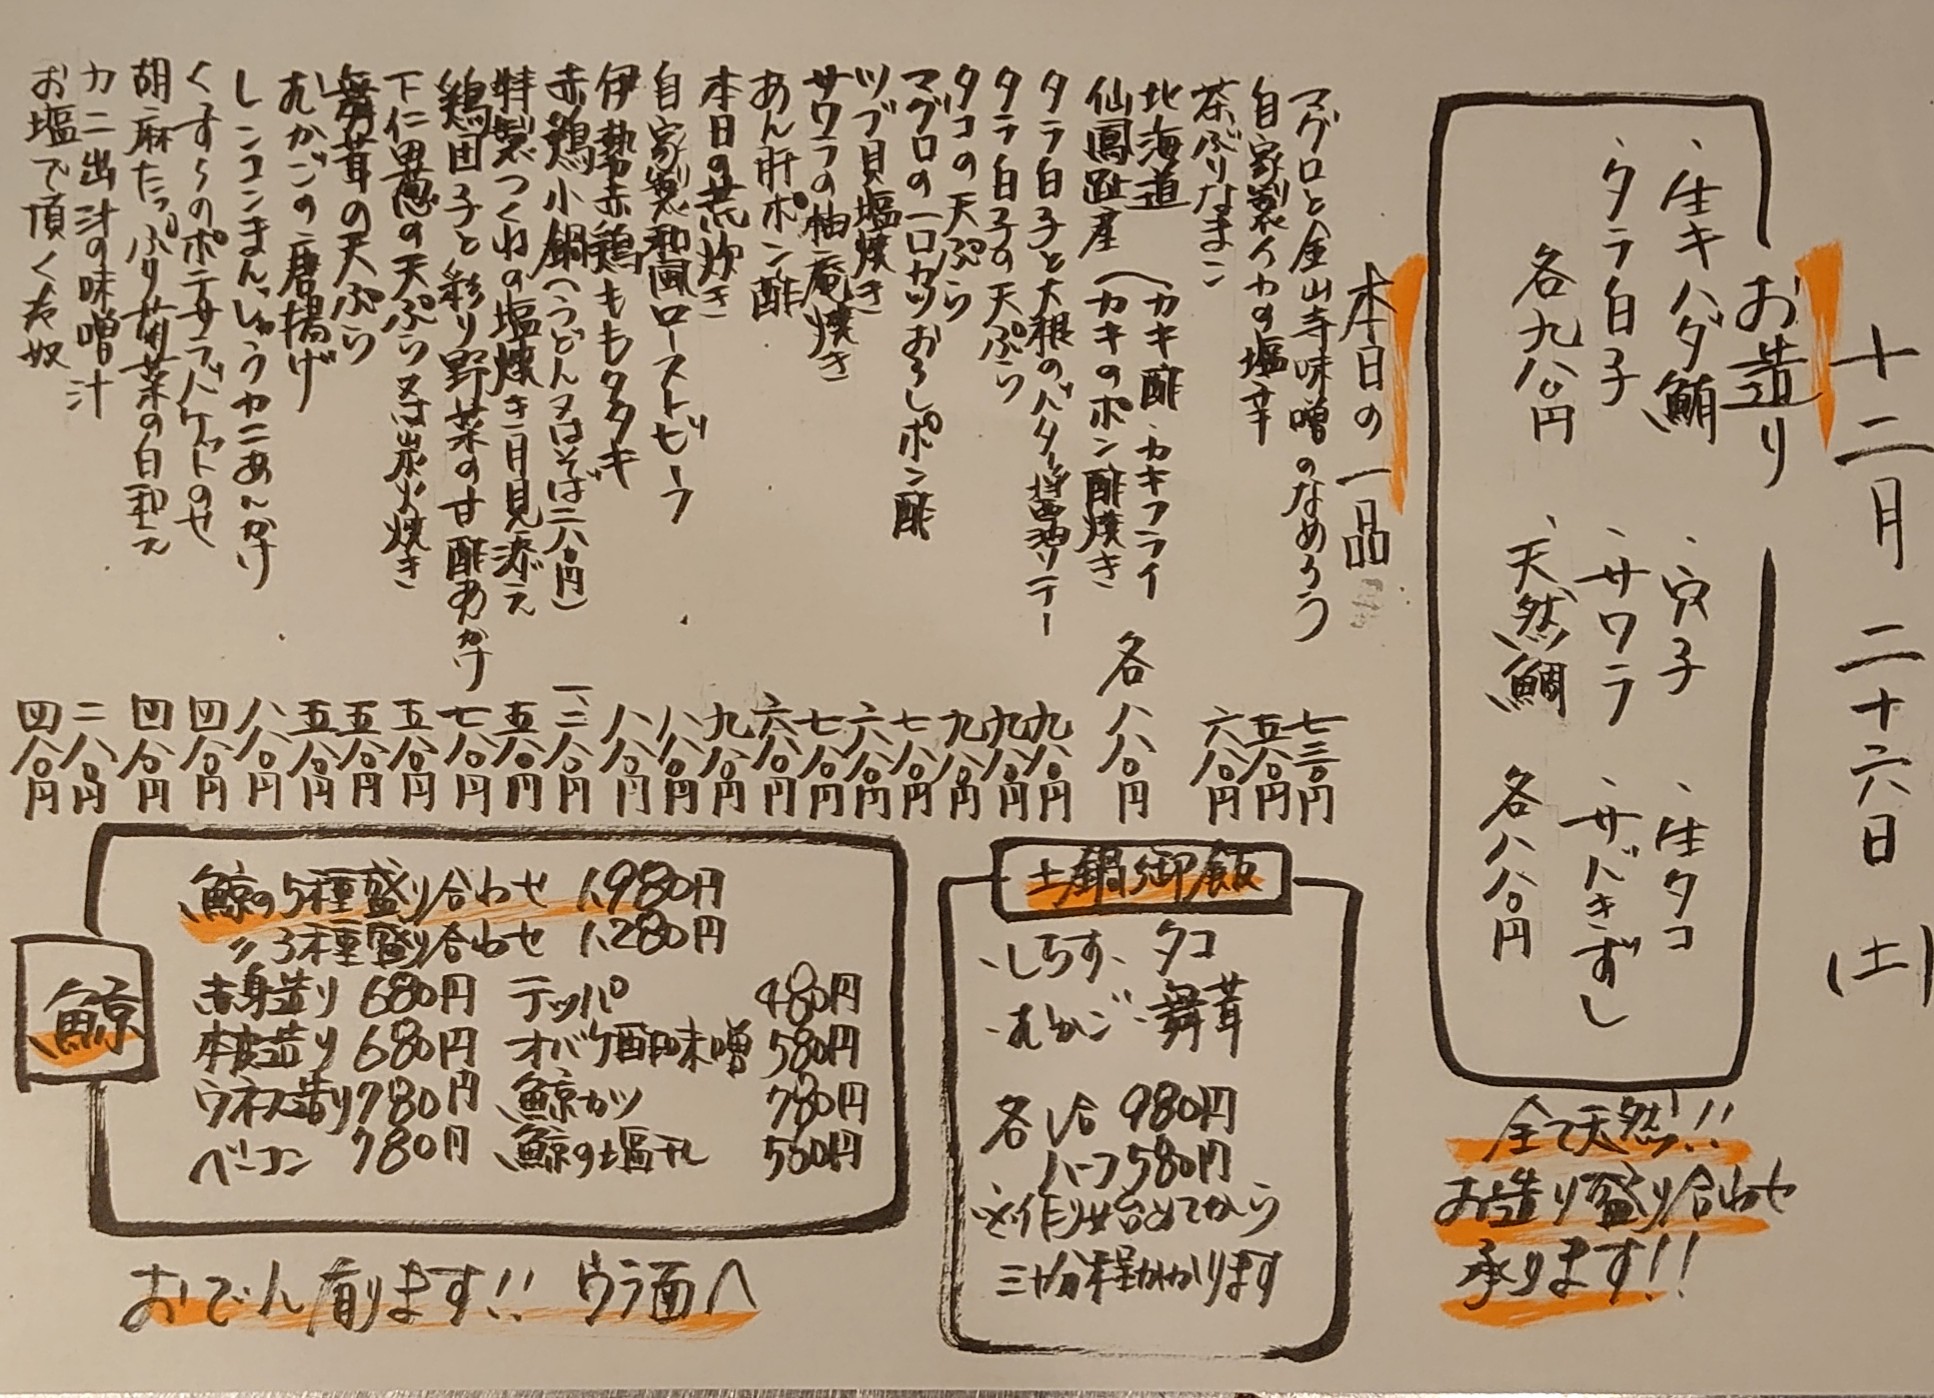 十二月二十六日(土)
お造り
・生キハダ鮪
・タラ白子
各九八〇円
・穴子
・サワラ
・天然鯛
・生タコ
・サバきずし
各八八〇円
全て天然!!
お造り盛り合わせ
承ります!!
本日の一品
マグロと金山寺味噌のなめろう 七三〇円
自家製イカの塩辛 五八〇円
茶ぶりなまこ 六八〇円
北海道
仙鳳趾産
(カキ酢・カキフライ
(カキのポン酢焼き
各八八〇円
タラ白子と大根のバター醤油ソテー 九八〇円
タラ白子の天ぷら 九八〇円
タコの天ぷら 九八〇円
マグロの一口カツおろしポン酢 七八〇円
ツブ貝塩焼き 六八〇円
サワラの柚庵焼き 七八〇円
あん肝ポン酢 六八〇円
本日の荒炊き 九八〇円
自家製和風ローストビーフ 八八〇円
伊勢赤鶏ももタタキ 八八〇円
赤鶏小鍋(うどん又はそば二八〇円) 一、二八〇円
特製つくねの塩焼き 月見添え 五八〇円
鶏団子と彩り野菜の甘酢あんかけ 七八〇円
下仁田葱の天ぷら又は炭火焼き 五八〇円
舞茸の天ぷら 五八〇円
むかごの唐揚げ 五八〇円
レンコンまんじゅうカニあんかけ 八八〇円
くすくすのポテサラ バケットのせ 四八〇円
胡麻たっぷり菊菜の白和え 四八〇円
カニ出汁の味噌汁 二八〇円
お塩で頂く冷奴 四八〇円
土鍋御飯
・しらす・タコ
・むかご・舞茸
各1合 980円
ハーフ580円
※作り始めてから
三十分程かかります
鯨
鯨の5種盛り合わせ 1,980円
〃3種盛り合わせ 1,280円
赤身造り 680円 テッパ 480円
本皮造り 680円 オバケ酢味噌 580円
ウネス造り 780円 鯨カツ 780円
ベーコン 780円 鯨の塩干し 580円
おでん有ります!! ウラ面へ